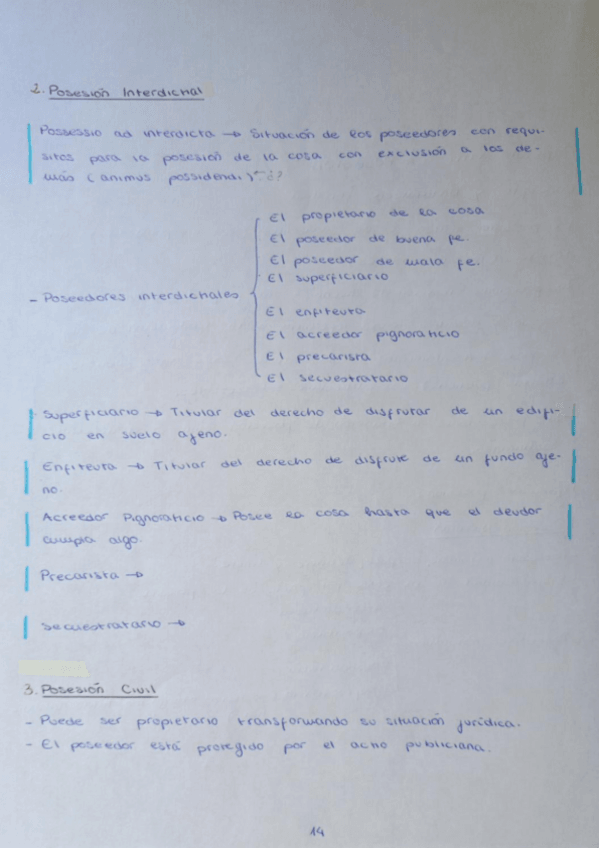 2. Posesión Interdichal
Possessio ad interdicta → Situación de los poseedores con requi-
sitos para la posesión de la cosa con exclusión a los de-
más (animus possidendi) ¿?
El propietario de la cosa
El poseedor de buena fe.
El poseedor de mala fe.
El superficiario
- Poseedores interdichales
El enfiteuta
El acreedor pignoraticio
El precarista
El secuestratario
Superficiario → Titular del derecho de disfrutar de un edifi-
cio en suelo ajeno.
Enfiteuta → Titular del derecho de disfrute de un fundo aje-
no.
Acreedor Pignoraticio → Posee la cosa hasta que el deudor
cumpla algo.
Precarista →
Secuestratario →
3. Posesión Civil
- Puede ser propietario transformando su situación jurídica.
- El poseedor está protegido por el actio publiciana.
14